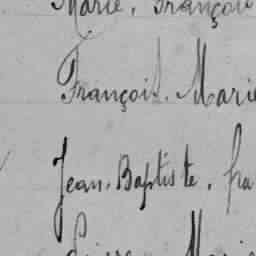 Marie, François
François, Marie
Jean-Baptiste, fra
Marie